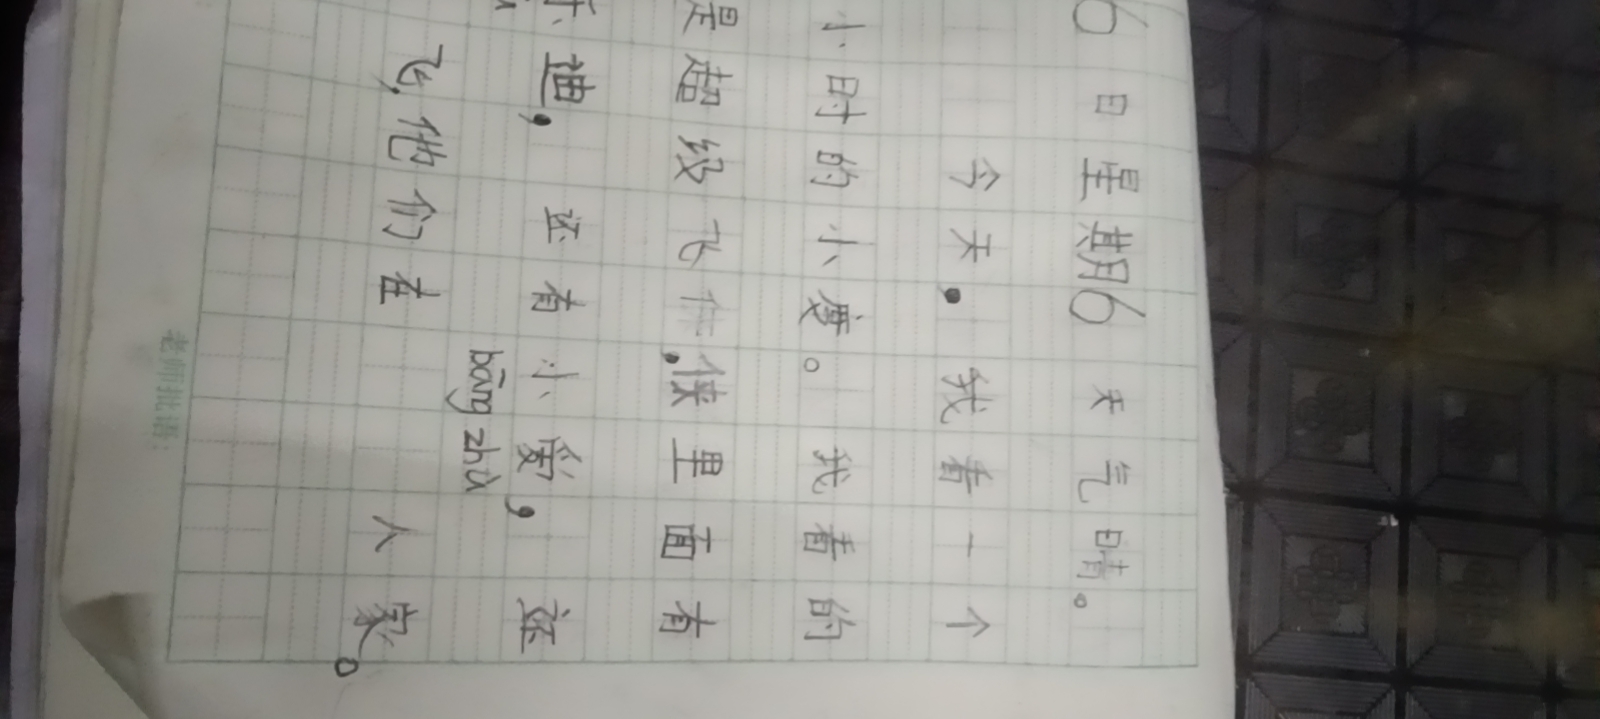 6日星期6天气晴。
今天,我看一个
小时的小度。我看的
是超级飞侠,里面有
乐迪,还有小爱,
bāng zhù
飞,他们在 人家。
老师批语: